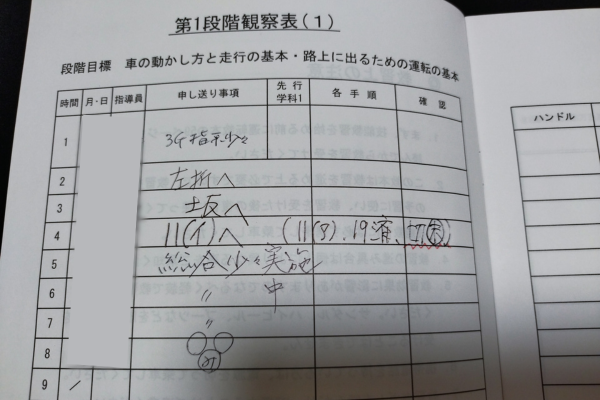 第1段階観察表(1)
段階目標 車の動かし方と走行の基本・路上に出るための運転の基本
時間 月・日 指導員 申し送り事項 先行学科1 各手順 確認
ハンドル
1 3G指示少々
2 左折へ
3
4 11(イ)へ (11(3).19済、
5 総合少々実施
6 〃 中
7 〃
8
9